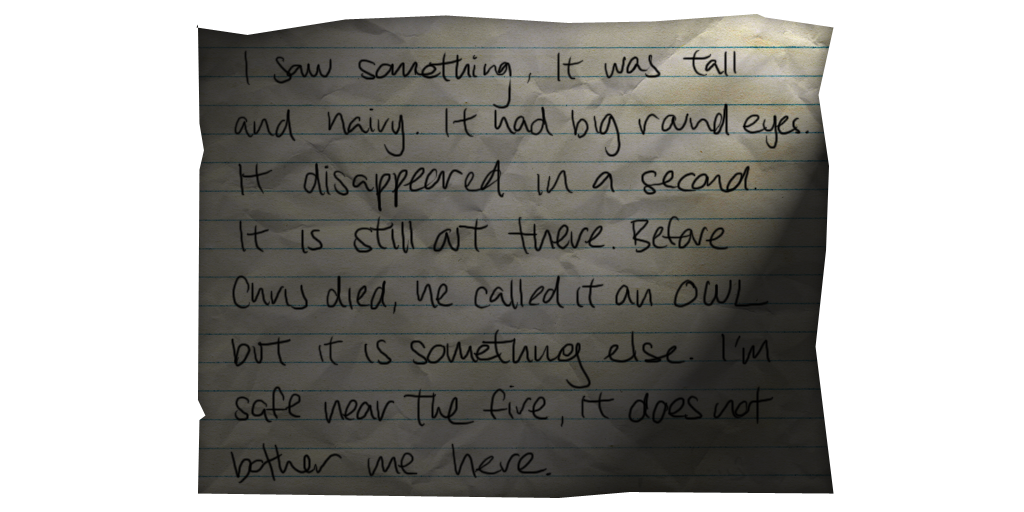 I saw something, It was tall
and hairy. It had big round eyes.
It disappeared in a second.
It is still out there. Before
Chris died, he called it an OWL
but it is something else. I'm
safe near the fire, it does not
bother me here.